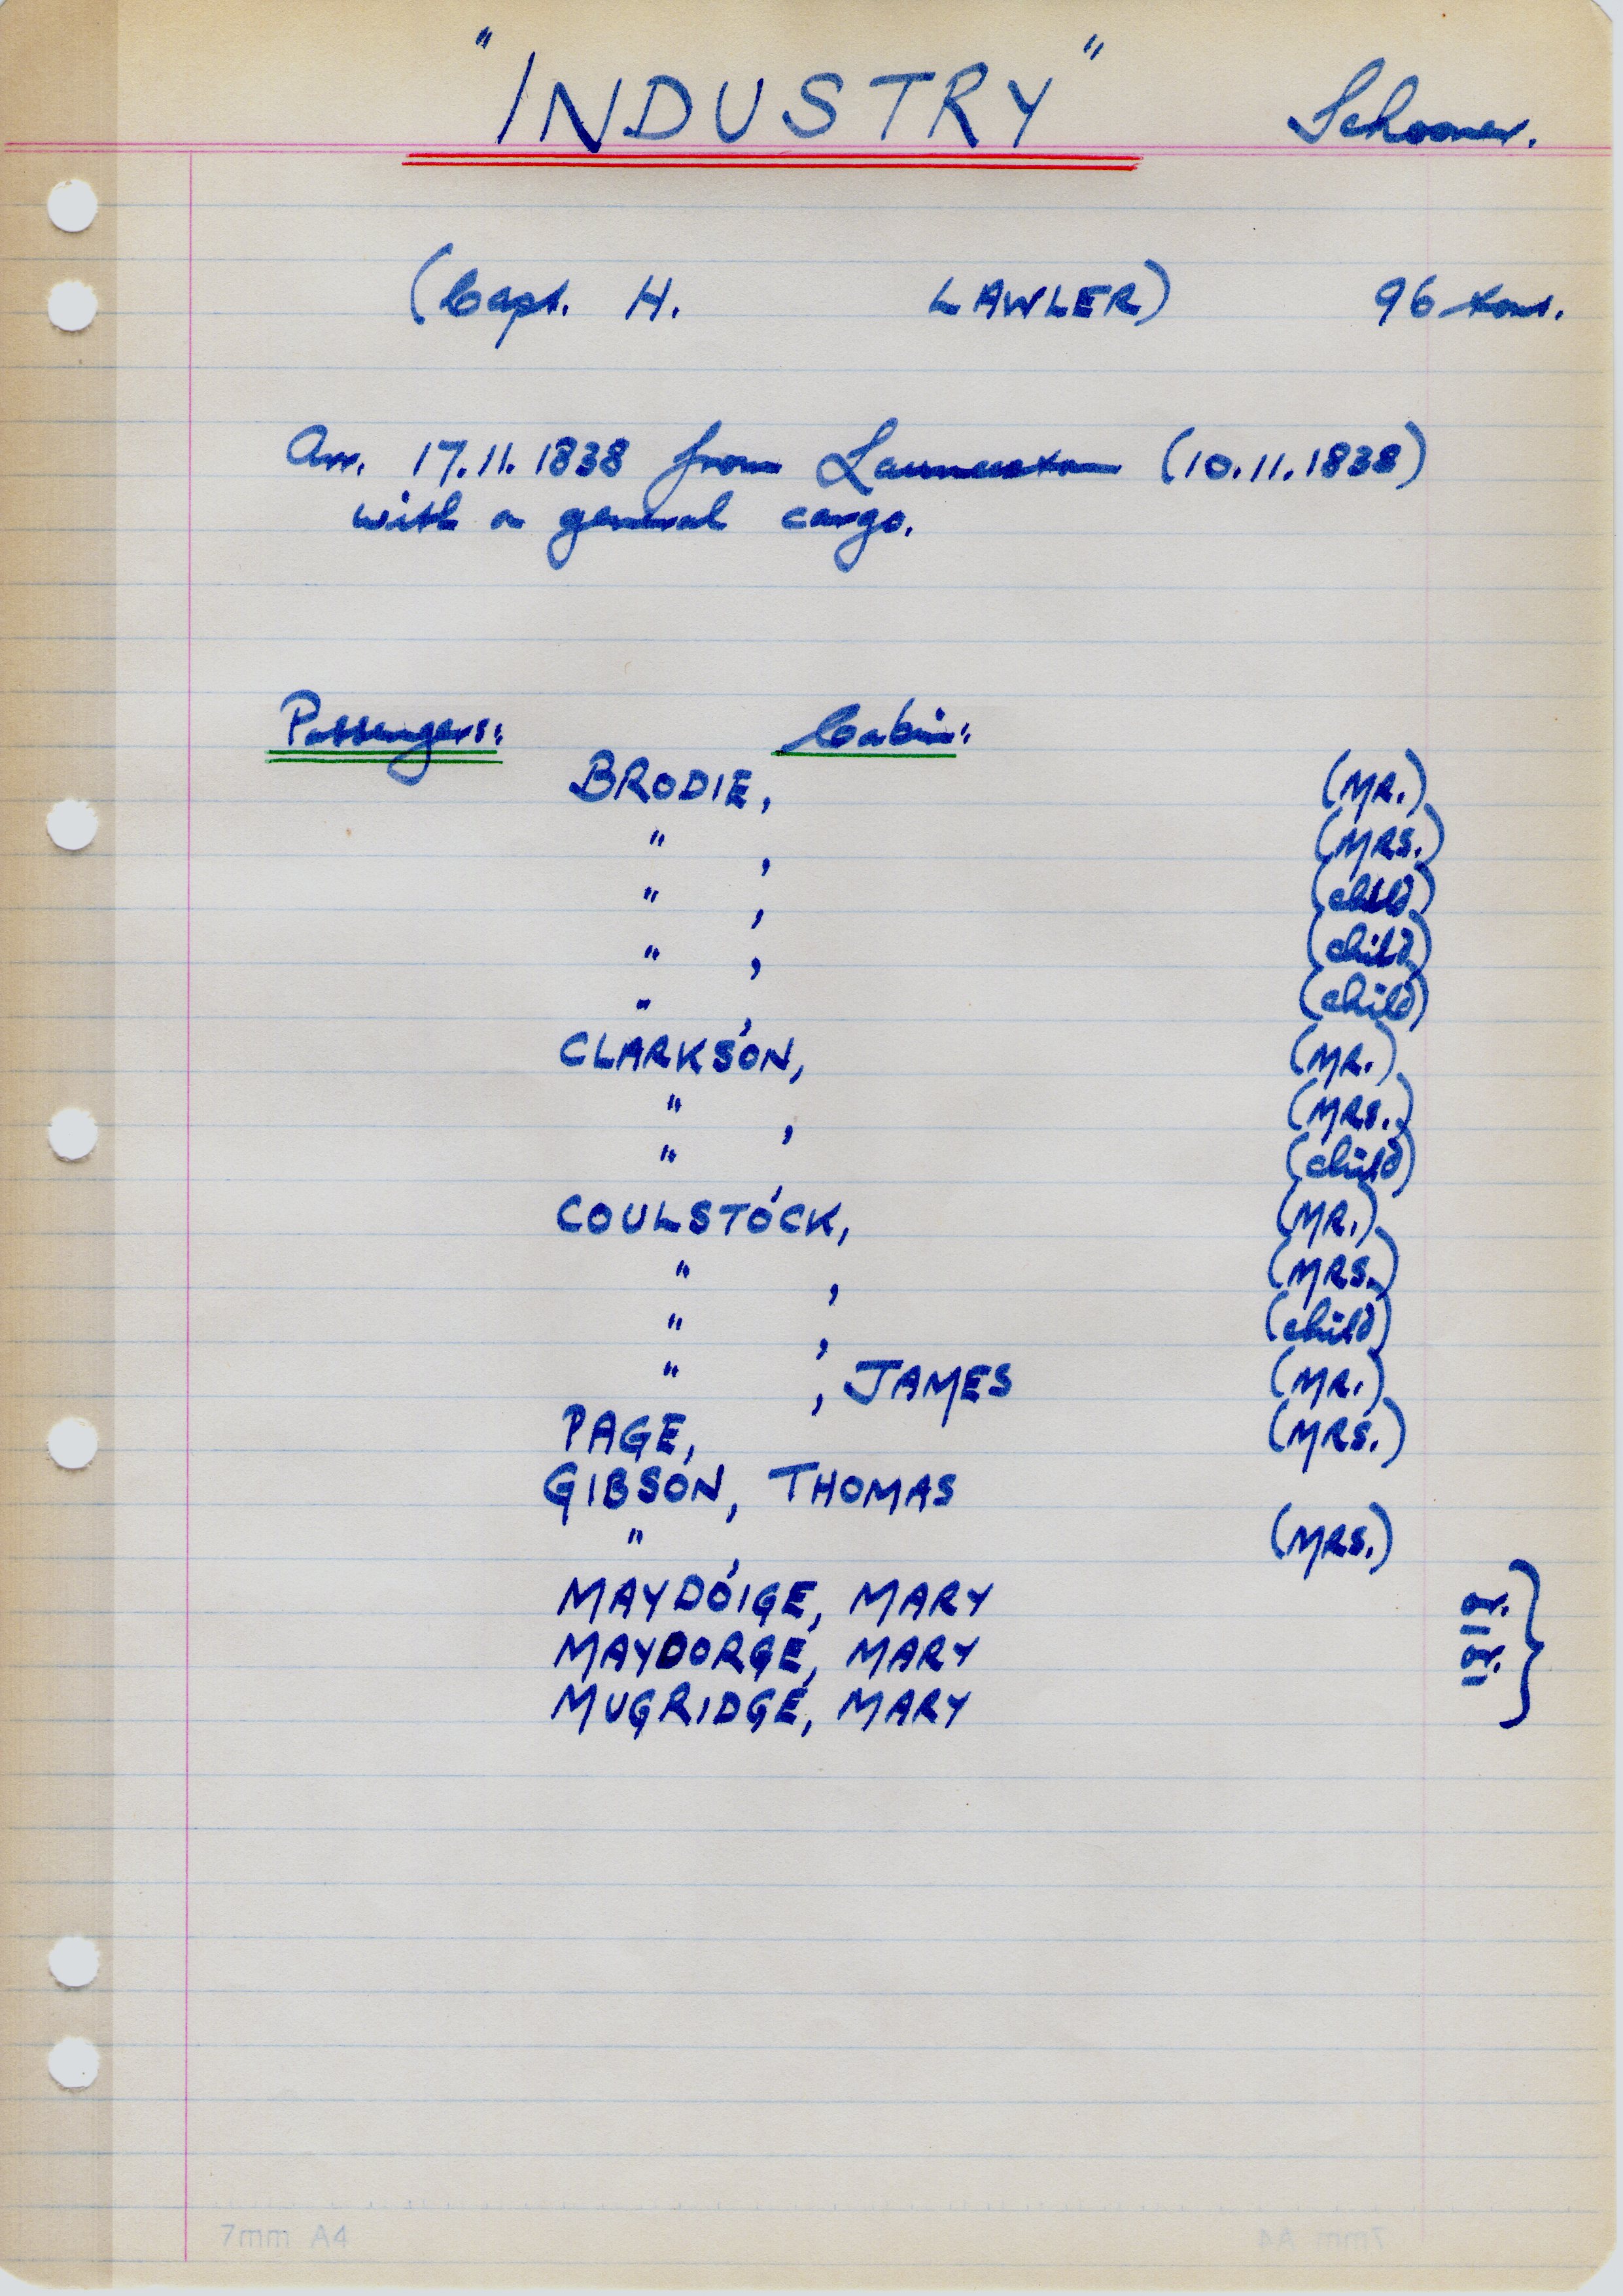 "INDUSTRY" Schooner.
(Capt. H. LAWLER) 96 tons.
Arr. 17.11.1838 from Launceston (10.11.1838)
with a general cargo.
Passengers: Cabin:
BRODIE, (MR.)
" , (MRS.)
" , (child)
" , (child)
" , (child)
CLARKSON, (MR.)
" , (MRS.)
" , (child)
COULSTOCK, (MR.)
" , (MRS.)
" , (child)
" , JAMES (MR.)
PAGE, (MRS.)
GIBSON, THOMAS
" , (MRS.)
MAYDOIGE, MARY or. }
MAYDORGE, MARY or.
MUGRIDGE, MARY
7mm A4